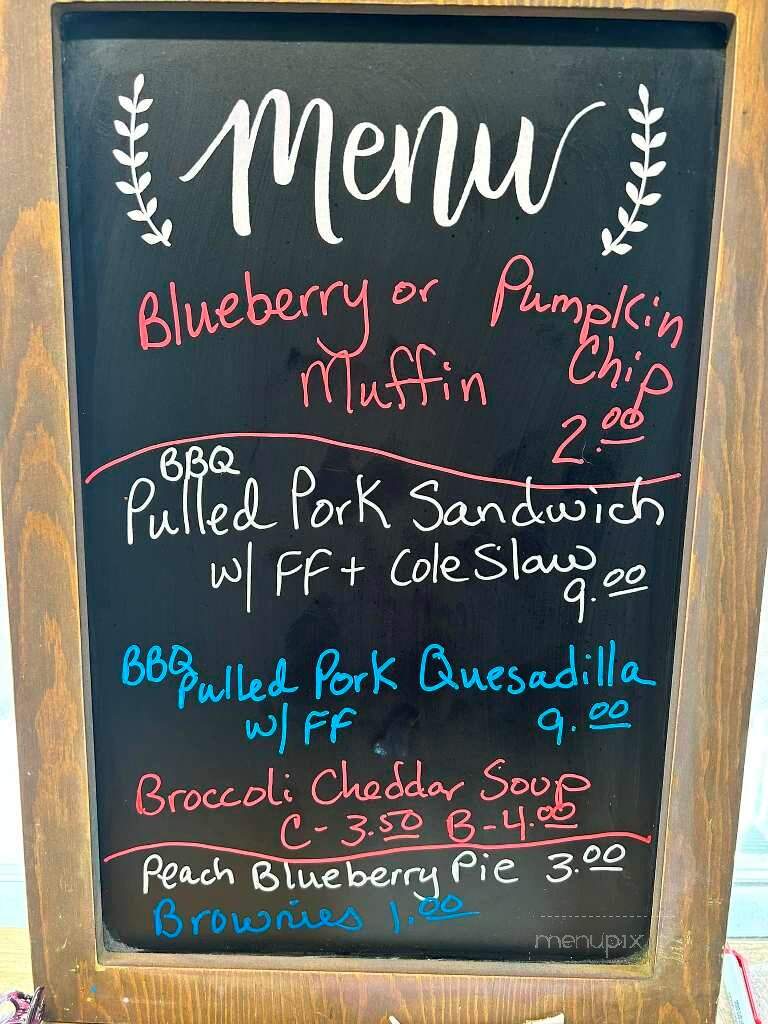 Menu
Blueberry or Pumpkin
Muffin Chip
2.00
BBQ
Pulled Pork Sandwich
w/ FF + Cole Slaw
9.00
BBQ Pulled Pork Quesadilla
w/ FF 9.00
Broccoli Cheddar Soup
C - 3.50 B - 4.00
Peach Blueberry Pie 3.00
Brownies 1.00
menupix